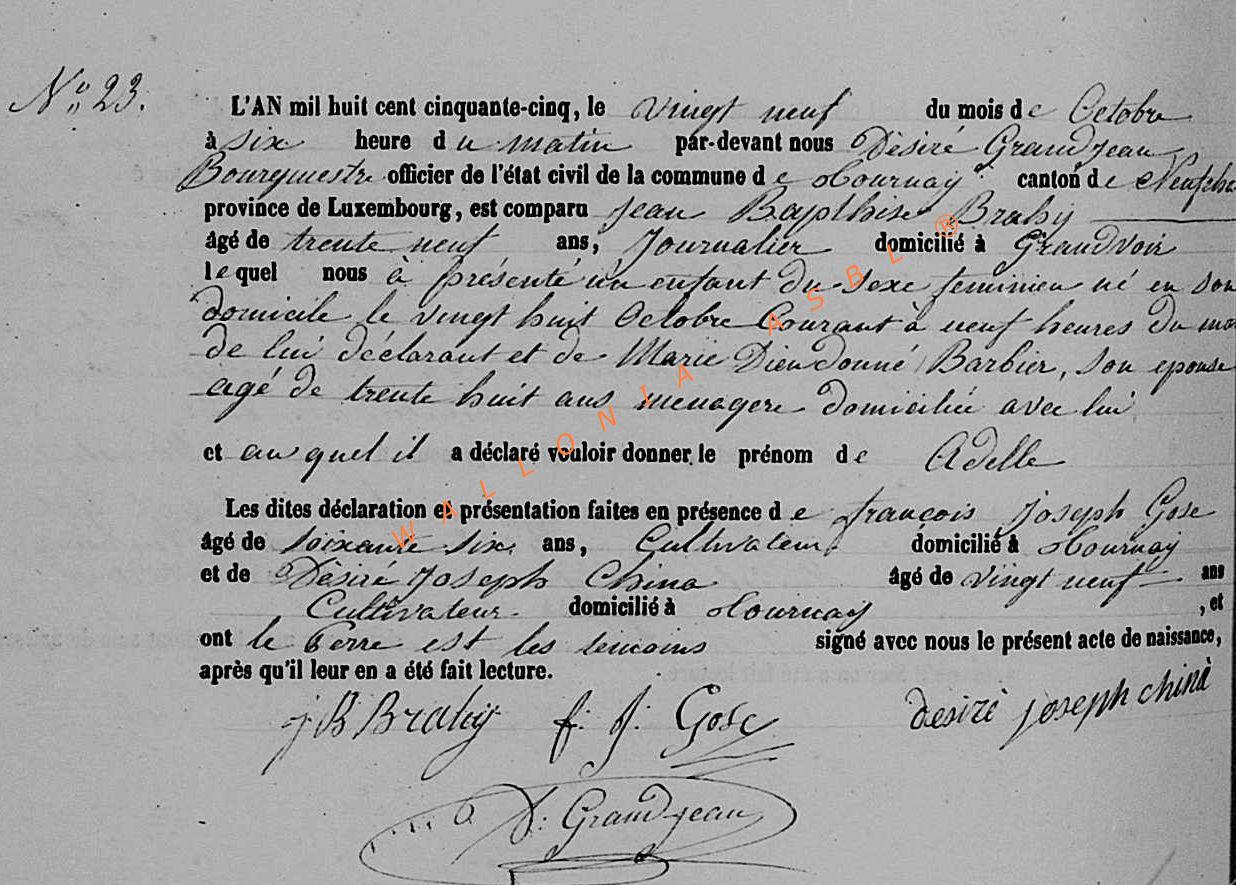 N° 23.
L'AN mil huit cent cinquante-cinq, le vingt neuf du mois de Octobre
à six heure du matin par-devant nous Désiré Grandjean
Bourgmestre officier de l'état civil de la commune de Tournay canton de Neufcha
province de Luxembourg, est comparu Jean Bapthise Brahy
âgé de trente neuf ans, Journalier domicilié à Grandvoir
lequel nous à présenté un enfant du sexe feminien né en son
domicile le vingt huit Octobre Courant à neuf heures du ma
de lui déclarant et de Marie Dieudonné Barbier, son epouse
agé de trente huit ans menagere domiciliée avec lui
et auquel il a déclaré vouloir donner le prénom de Adelle
Les dites déclaration et présentation faites en présence de françois Joseph Gose
âgé de soixante six ans, Cultivateur domicilié à Tournay
et de Désiré Joseph China âgé de vingt neuf ans
Cultivateur domicilié à Tournay , et
ont le est les temoins signé avec nous le présent acte de naissance,
après qu'il leur en a été fait lecture.
j B Brahy f. J. Gose désiré joseph chinà
D. Grandjean
WALLONIA ASBL ®